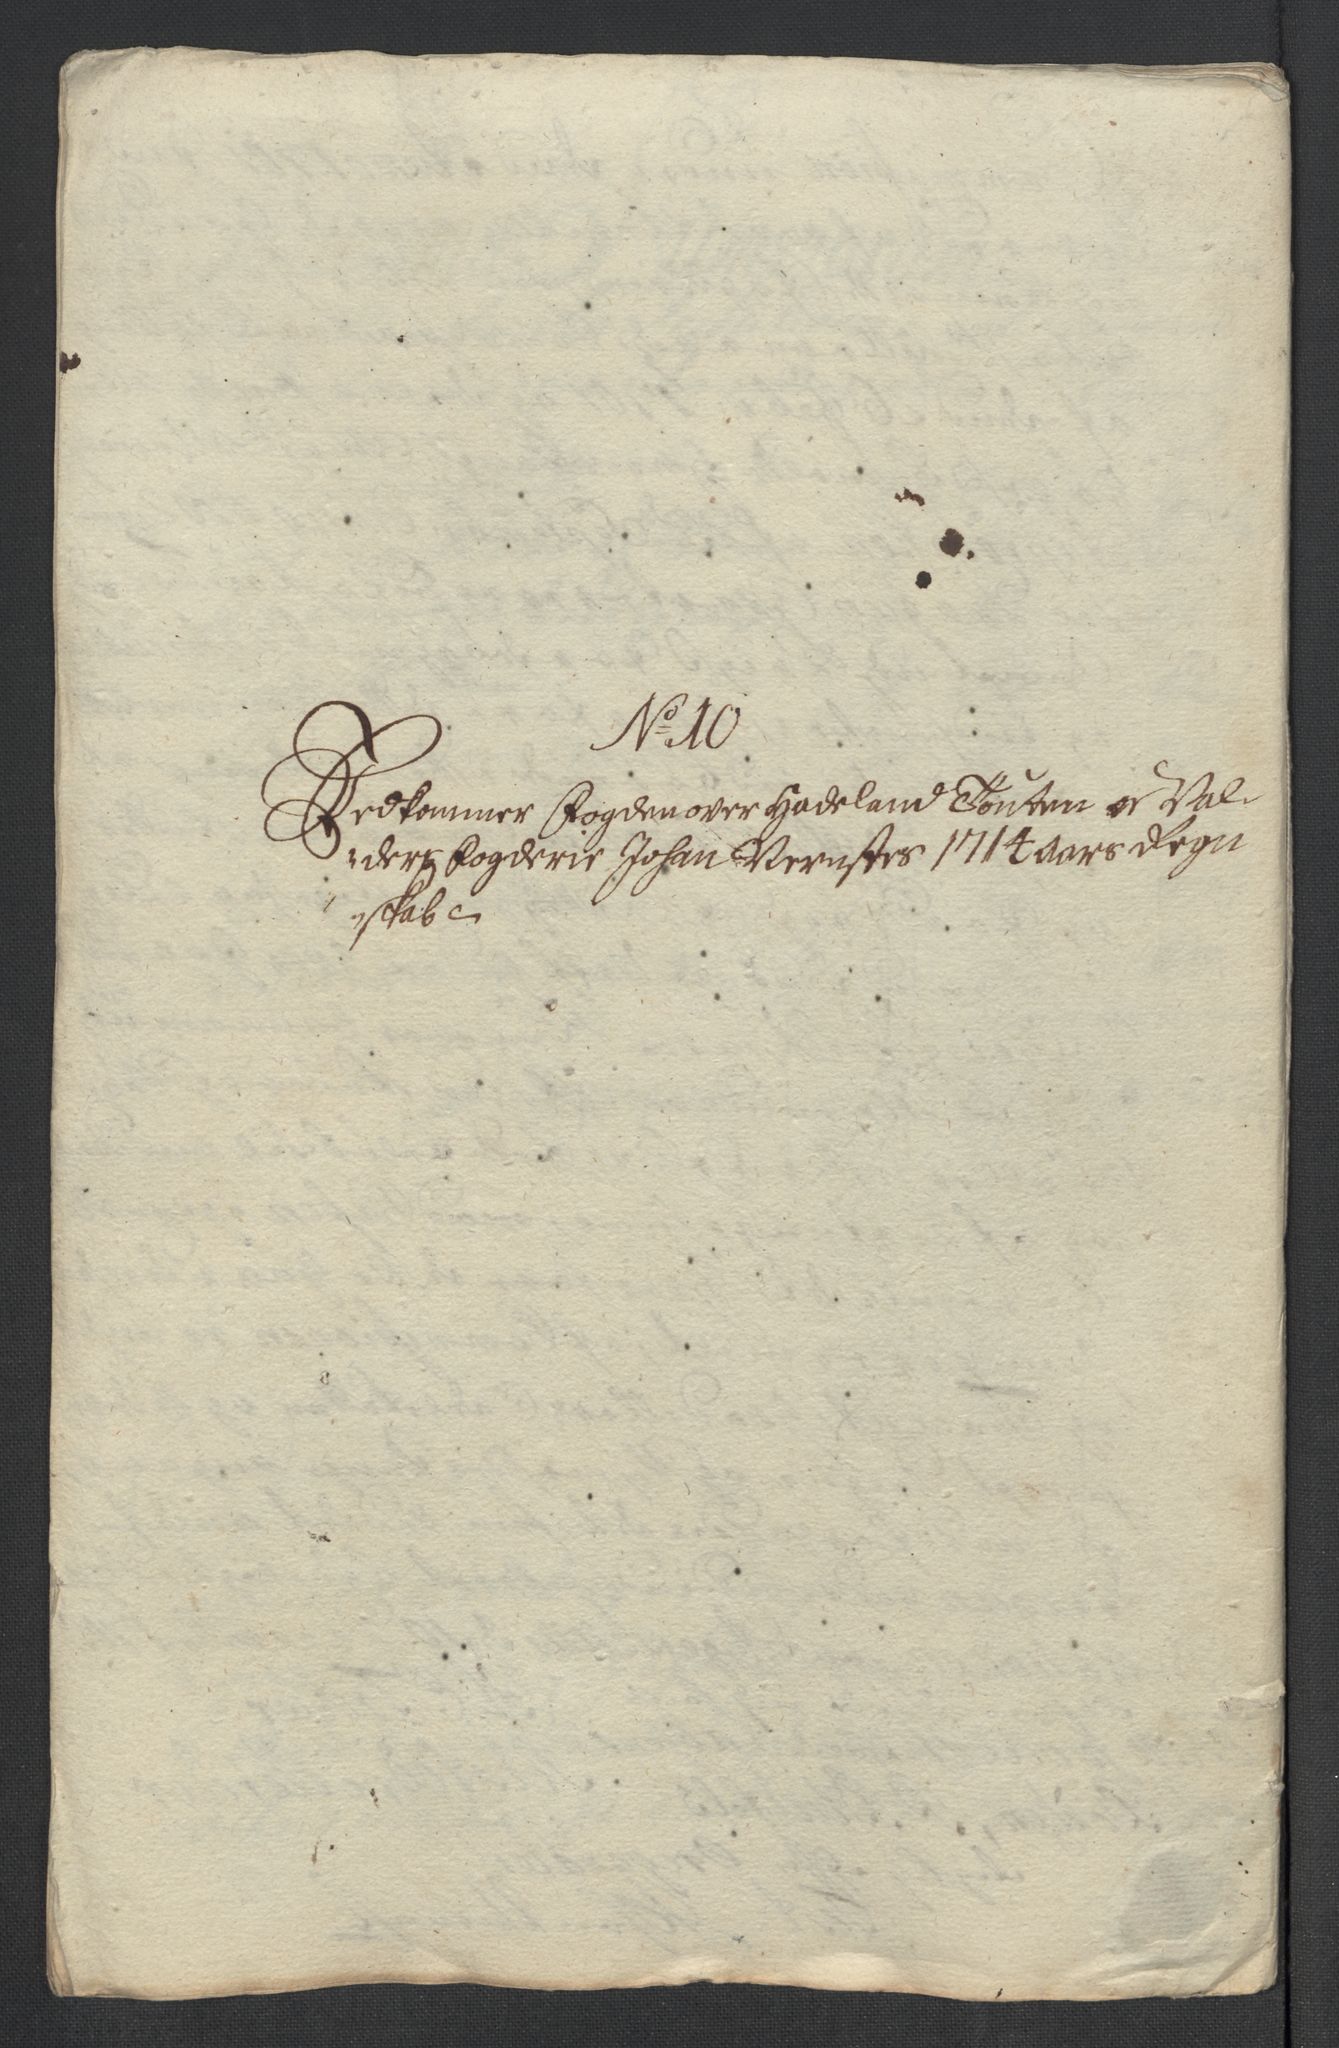 No 10
Vedkommer Fogden over Hadeland Touten oc Val-
ders Fogderie Johan Vernstes 1714 aars Regn
skab